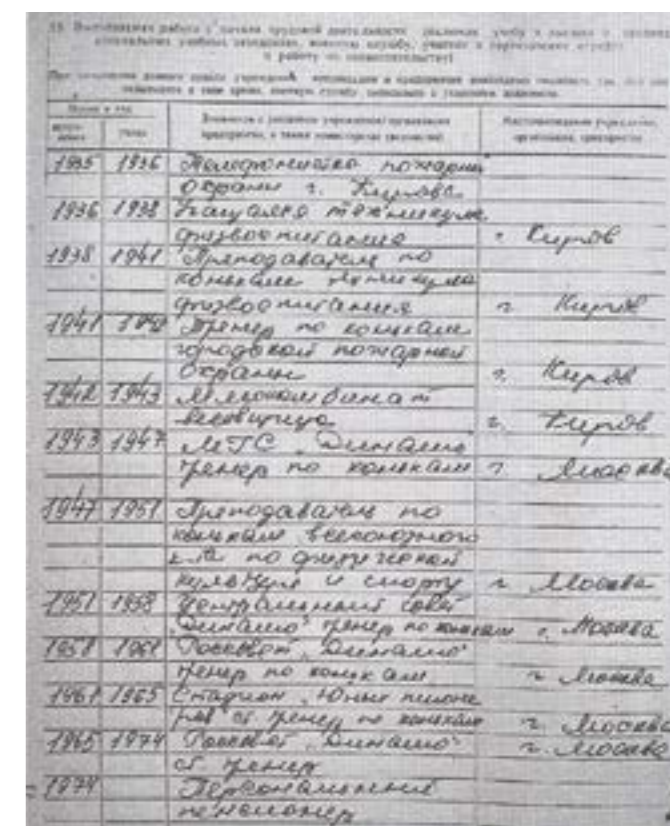 Выполняемая работа с начала трудовой деятельности (включая учебу в высших и средних
специальных учебных заведениях, военную службу, участие в партизанских отрядах
и работу по совместительству)
При заполнении данного пункта учреждения, организации и предприятия необходимо именовать так, как они
назывались в свое время, военную службу записывать с указанием должности.
Месяц и год
вступления
ухода
Должность с указанием учреждения, организации,
предприятия, а также министерства (ведомства)
Местонахождение учреждения,
организации, предприятия
1935 1936 Телефонистка пожарной
охраны г. Кирова
1936 1938 Учащаяся техникума
физвоспитания г. Киров
1938 1941 Преподаватель по
конькам техникума
физвоспитания г. Киров
1941 1942 Тренер по конькам
городской пожарной
охраны г. Киров
1942 1943 Мясокомбинат
весовщица г. Киров
1943 1947 МГС "Динамо"
тренер по конькам г. Москва
1947 1951 Преподаватель по
конькам всесоюзного
по физической
культуре и спорту г. Москва
1951 1958 Центральный совет
"Динамо" тренер по конькам г. Москва
1958 1961 Горсовет "Динамо"
тренер по конькам г. Москва
1961 1965 Стадион "Юных пионе
ров" ст. тренер по конькам г. Москва
1965 1974 Горсовет "Динамо" г. Москва
ст. тренер
1974 Персональный
пенсионер